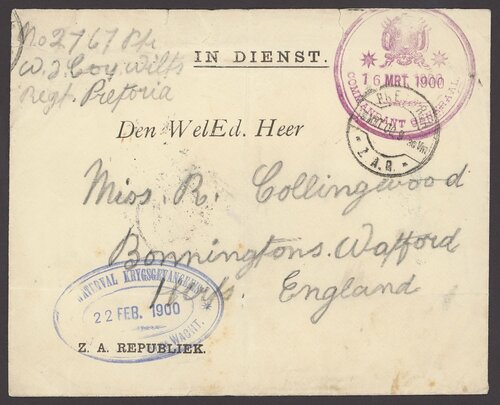 No 2767 Pte
W. J. Cox Wilts
Regt. Pretoria
IN DIENST.
16 MRT. 1900
COMMANDANT GENERAAL
Z. A. R.
Den WelEd. Heer
Miss. R. Collingwood
Bonningtons. Wafford
Herts. England
WATERVAL KRYGSGEVANGENEN
22 FEB. 1900
WACHT.
Z. A. REPUBLIEK.